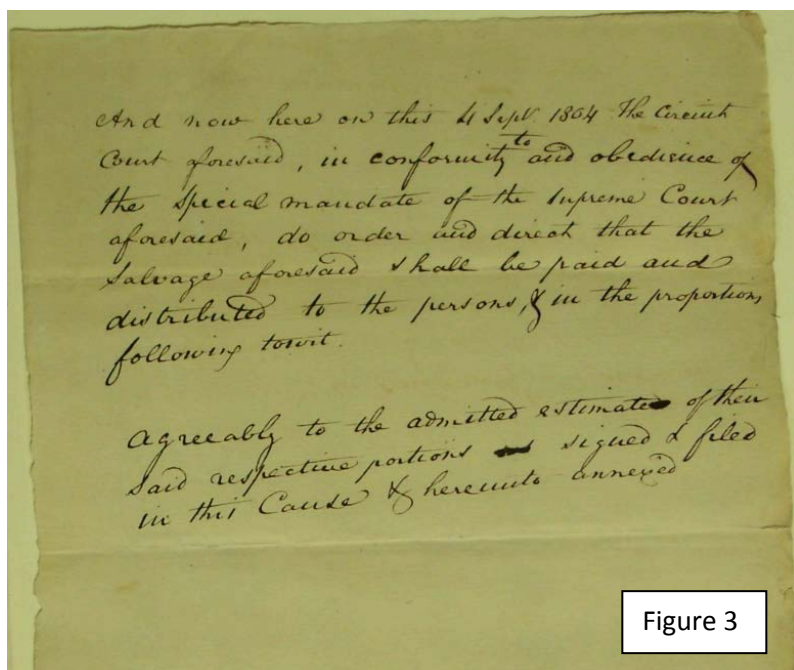 And now here on this 4 Sept. 1804 The Circuit
Court aforesaid, in conformity to and obedience of
the special mandate of the Supreme Court
aforesaid, do order and direct that the
Salvage aforesaid shall be paid and
distributed to the persons, & in the proportions
following towit.
agreeably to the admitted estimate of their
said respective portions signed & filed
in this Cause & hereunto annexed
Figure 3